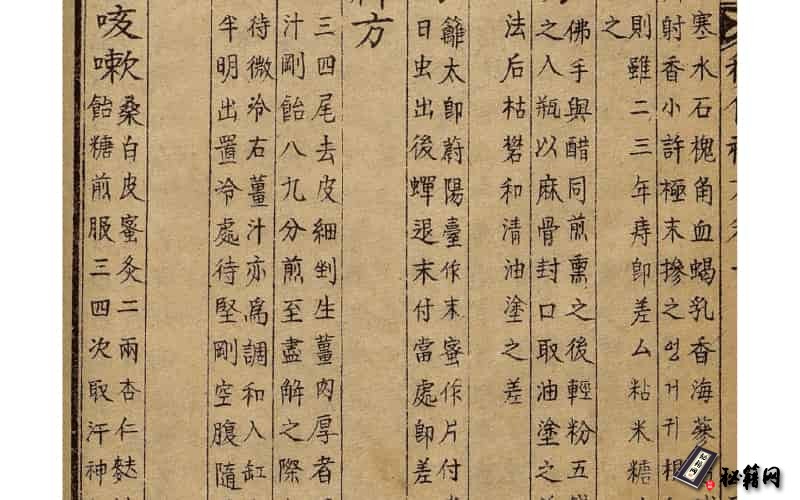 寒水石槐角血蝎乳香海蔘
射香小許極末摻之영거귀根
則雖二三年痔卽差厶粘米糖
之
佛手與醋同煎熏之後輕粉五
之入甁以麻骨封口取油塗之
法后枯礬和清油塗之差
籬太卽蔚陽臺作末蜜作片付
日虫出後蟬退末付當處卽差
方
三四尾去皮細剉生薑肉厚者
汁剛飴八九分煎至盡解之際
待微冷右薑汁亦爲調和入缸
半明出置冷處待堅剛空腹隨
咳嗽
桑白皮蜜灸二兩杏仁麩
飴糖煎服三四次取汗神
秘籍网